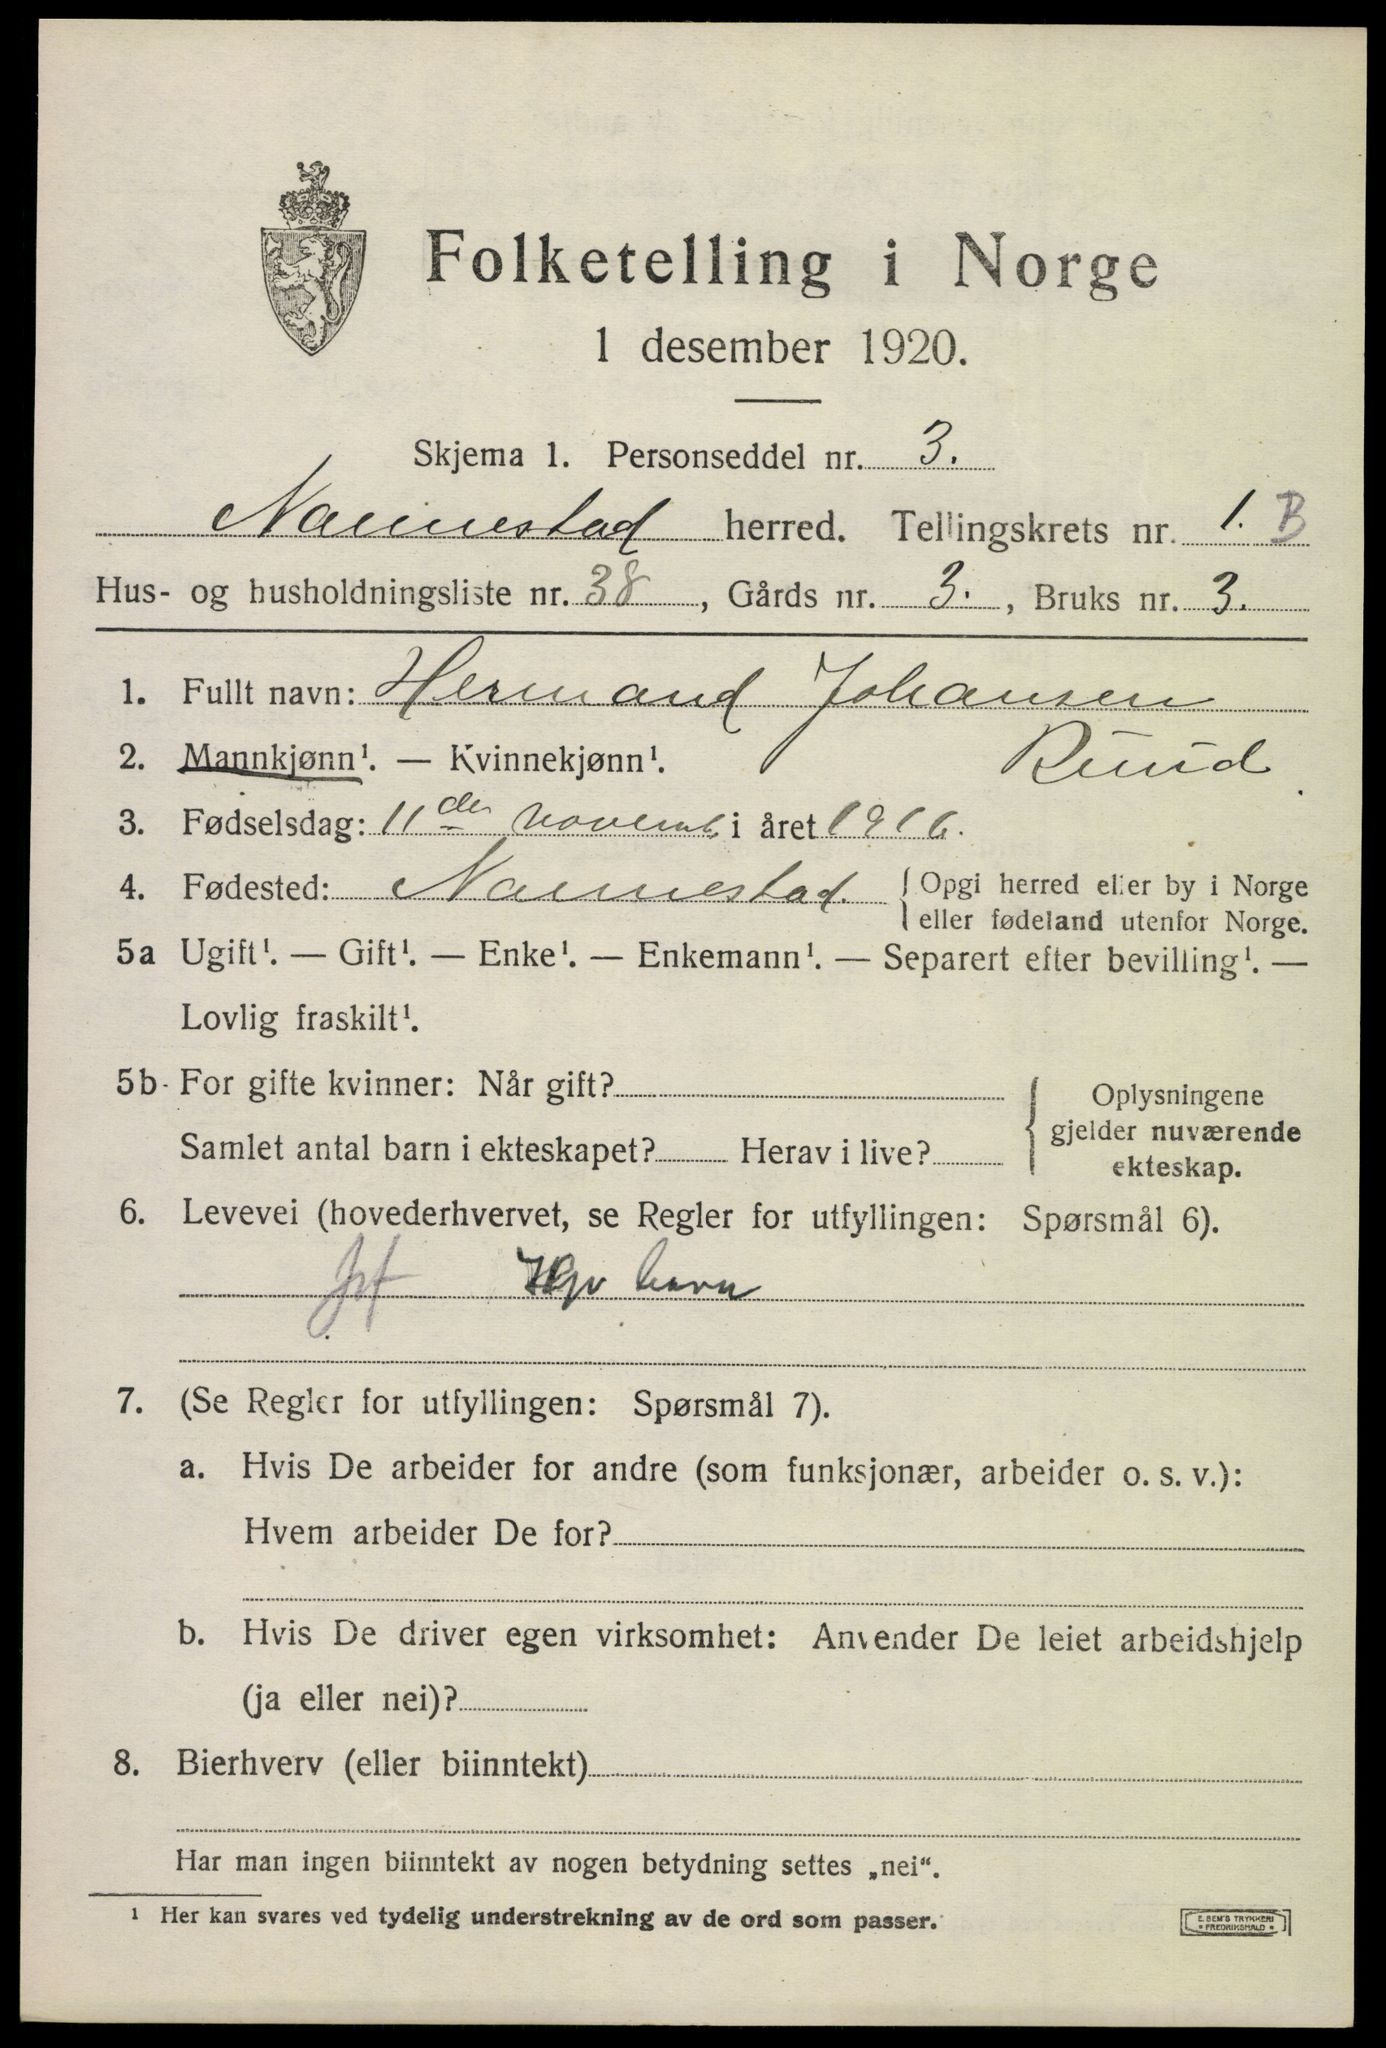 Folketelling i Norge
1 desember 1920.
Skjema 1. Personseddel nr. 3.
Nannestad herred. Tellingskrets nr. 1. B
Hus- og husholdningsliste nr. 38, Gårds nr. 3., Bruks nr. 3.
1. Fullt navn: Hermand Johansen
Ruud
2. Mannkjønn¹. — Kvinnekjønn¹.
3. Fødselsdag: 11 de novemb i året 1916.
4. Fødested: Nannestad. { Opgi herred eller by i Norge
eller fødeland utenfor Norge.
5a Ugift¹. — Gift¹. — Enke¹. — Enkemann¹. — Separert efter bevilling¹. —
Lovlig fraskilt¹.
5b For gifte kvinner: Når gift?
Samlet antal barn i ekteskapet? Herav i live?
{ Oplysningene
gjelder nuværende
ekteskap.
6. Levevei (hovederhvervet, se Regler for utfyllingen: Spørsmål 6).
barn
7. (Se Regler for utfyllingen: Spørsmål 7).
a. Hvis De arbeider for andre (som funksjonær, arbeider o. s. v.):
Hvem arbeider De for?
b. Hvis De driver egen virksomhet: Anvender De leiet arbeidshjelp
(ja eller nei)?
8. Bierhverv (eller biinntekt)
Har man ingen biinntekt av nogen betydning settes „nei“.
¹ Her kan svares ved tydelig understrekning av de ord som passer.
E. SEM'S TRYKKERI
• FREDRIKSHALD •